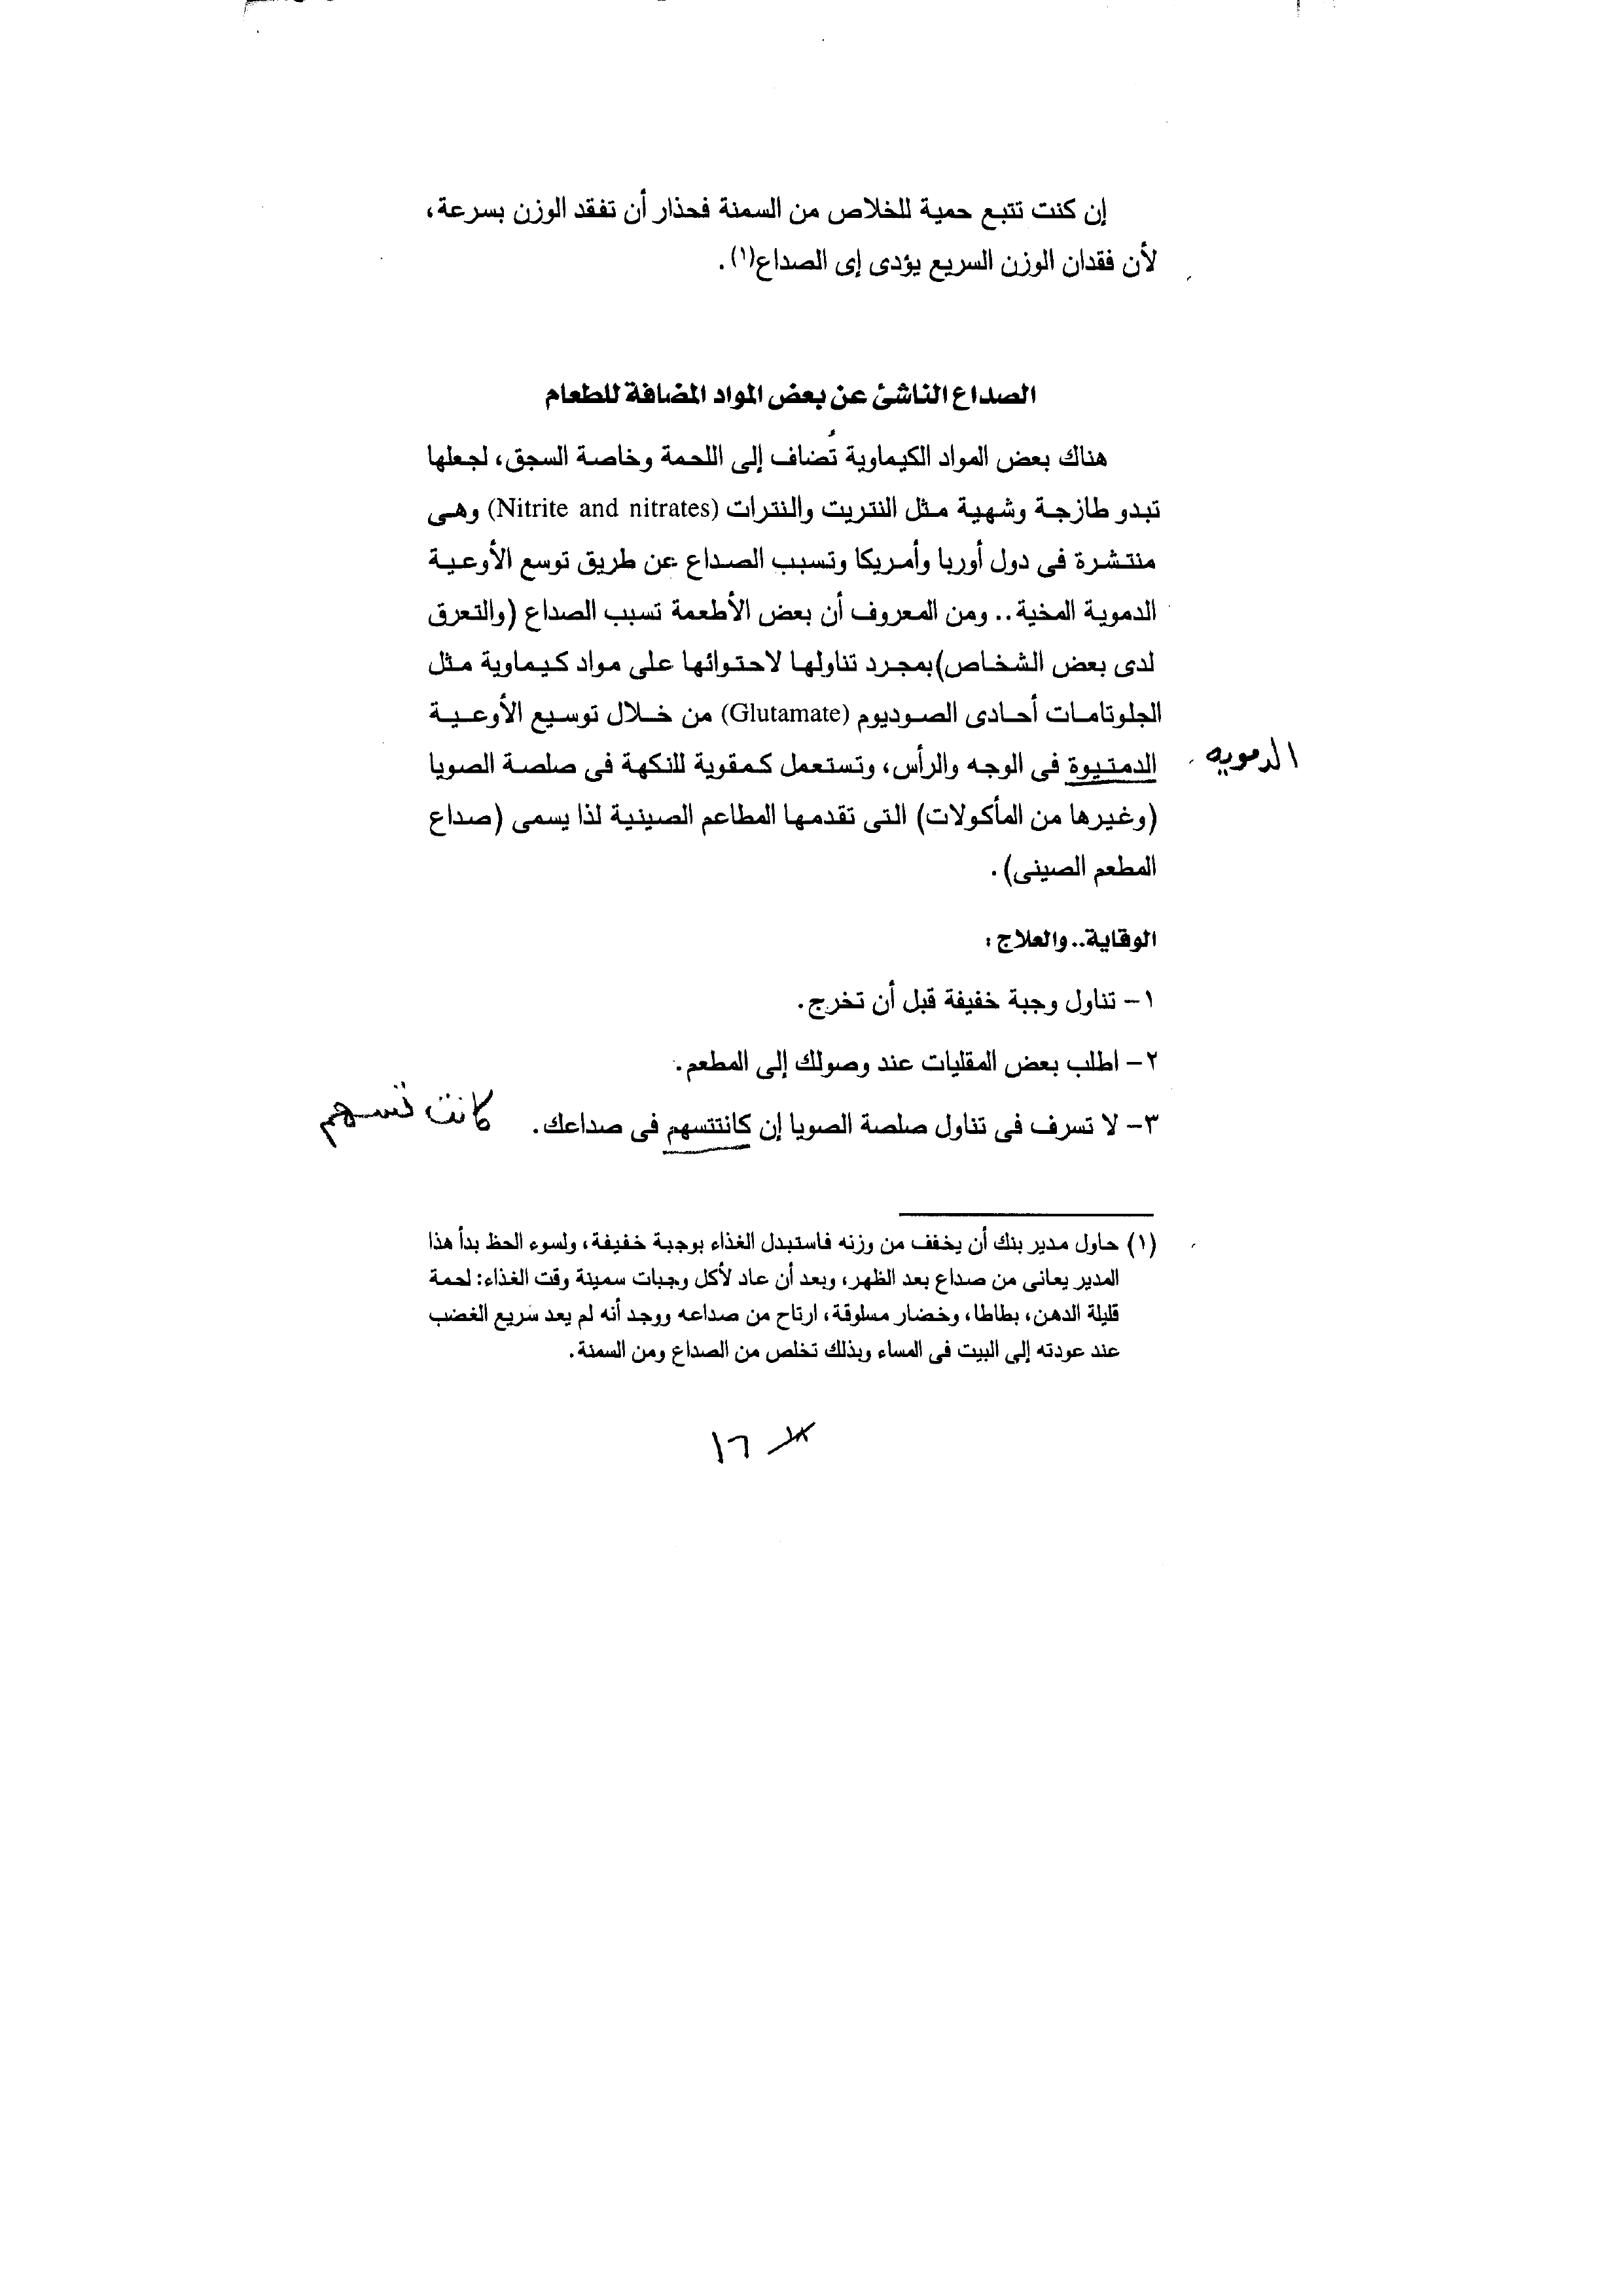 إن كنت تتبع حمية للخلاص من السمنة فحذار أن تفقد الوزن بسرعة،
لأن فقدان الوزن السريع يؤدى إى الصداع(١).
الصداع الناشئ عن بعض المواد المضافة للطعام
هناك بعض المواد الكيماوية تُضاف إلى اللحمة وخاصة السجق، لجعلها
تبدو طازجة وشهية مثل النتريت والنترات (Nitrite and nitrates) وهى
منتشرة فى دول أوربا وأمريكا وتسبب الصداع عن طريق توسع الأوعية
الدموية المخية.. ومن المعروف أن بعض الأطعمة تسبب الصداع (والتعرق
لدى بعض الشخاص)بمجرد تناولها لاحتوائها على مواد كيماوية مثل
الجلوتامات أحادى الصوديوم (Glutamate) من خلال توسيع الأوعية
الدمتيوة فى الوجه والرأس، وتستعمل كمقوية للنكهة فى صلصة الصويا
الدمويه
(وغيرها من المأكولات) التى تقدمها المطاعم الصينية لذا يسمى (صداع
المطعم الصينى).
الوقاية.. والعلاج:
١- تناول وجبة خفيفة قبل أن تخرج.
٢- اطلب بعض المقليات عند وصولك إلى المطعم.
٣- لا تسرف فى تناول صلصة الصويا إن كانتتسهم فى صداعك.
كانت تسهم
(١) حاول مدير بنك أن يخفف من وزنه فاستبدل الغذاء بوجبة خفيفة، ولسوء الحظ بدأ هذا
المدير يعانى من صداع بعد الظهر، وبعد أن عاد لأكل وجبات سمينة وقت الغذاء: لحمة
قليلة الدهن، بطاطا، وخضار مسلوقة، ارتاح من صداعه ووجد أنه لم يعد سريع الغضب
عند عودته إلى البيت فى المساء وبذلك تخلص من الصداع ومن السمنة.
١٨ ١٦